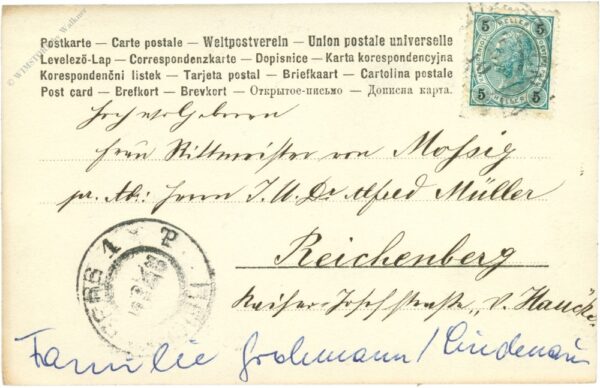 Postkarte — Carte postale — Weltpostverein — Union postale universelle
Levelező-Lap — Correspondenzkarte — Dopisnice — Karta korespondencyjna
Korespondenční listek — Tarjeta postal — Briefkaart — Cartolina postale
Post card — Brefkort — Brevkort — Открытое-письмо — Дописна карта.
5 HELLER 5
5 HELLER 5
Hochwolgeboren
Frau Rittmeister von Mossig
pr. Ad.: Herrn J. U. Dr Alfred Müller
Reichenberg
Kaiser-Josefstraße, v. Haucke
1
Familie Grohmann / Lindenau